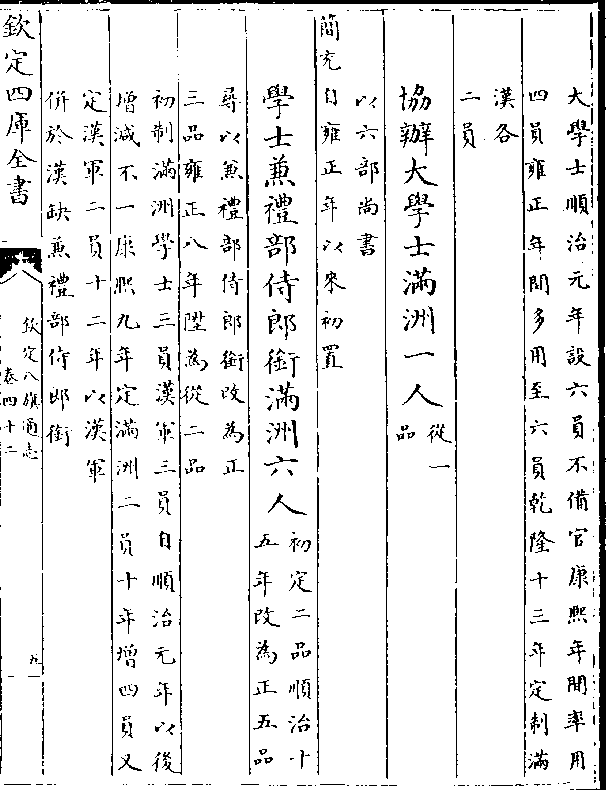 大學士順治元年設六員不備官康熙年間率用
四員雍正年間多用至六員乾隆十三年定制滿
漢各
二員
協辦大學士滿洲一人從一
品
以六部尚書
簡充自雍正年以來初置
學士兼禮部侍郎銜滿洲六人初定二品順治十
五年改為正五品
尋以兼禮部侍郎銜改為正
三品雍正八年陞為從二品
初制滿洲學士三員漢軍三員自順治元年以後
增減不一康熙九年定滿洲二員十年增四員又
定漢軍二員十二年以漢軍
併於漢缺兼禮部侍郎銜
欽定四庫全書
欽定八旗通志
卷四十二
九